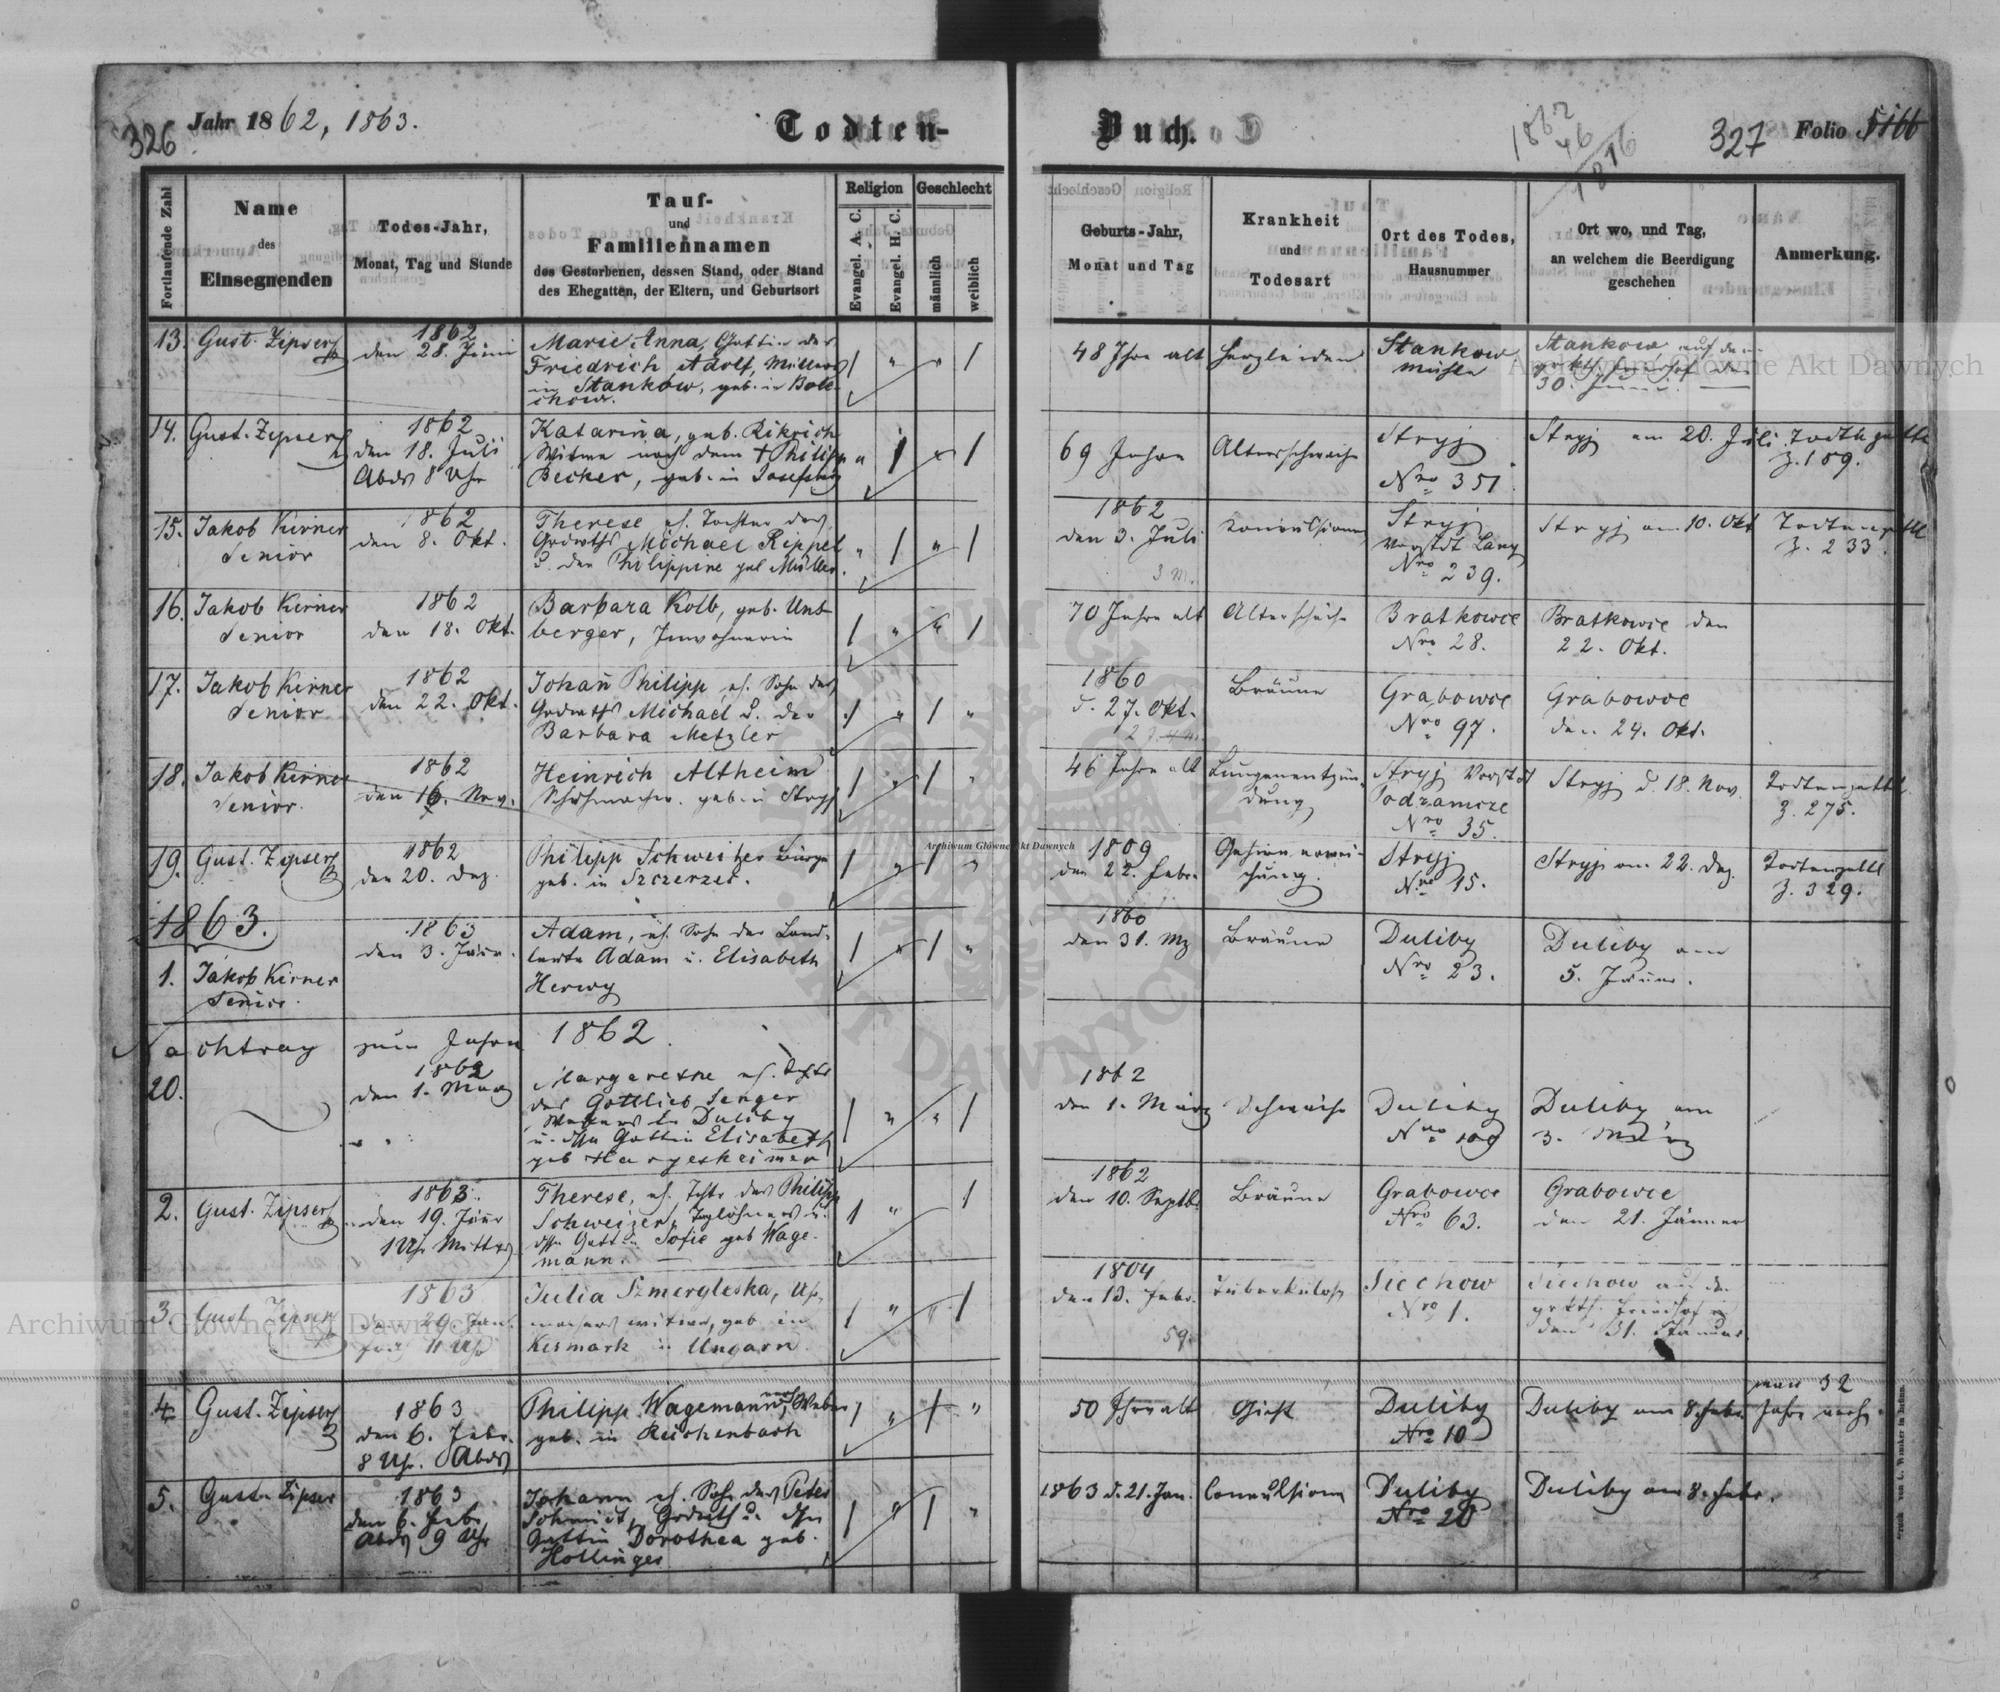 326
Jahr 1862, 1863.
Todten-
Buch.
1862
46
1816
327
Folio
Fortlaufende Zahl
Name
des
Einsegnenden
Todes-Jahr,
Monat, Tag und Stunde
Tauf-
und
Familiennamen
des Gestorbenen, dessen Stand, oder Stand
des Ehegatten, der Eltern, und Geburtsort
Religion
Evangel. A. C.
Evangel. H. C.
Geschlecht
männlich
weiblich
Geburts-Jahr,
Monat und Tag
Krankheit
und
Todesart
Ort des Todes,
Hausnummer
Ort wo, und Tag,
an welchem die Beerdigung
geschehen
Anmerkung.
13. Gust. Zipser
1862
den 28. Juni
Marie Anna, Gattin des
Friedrich Adolf, Müllers
in Stankow, geb. in Bole-
chow.
48 Jhre alt
Herzleiden
Stankow
Mühle
Stankow auf dem
30. Juni.
14. Gust. Zipser
1862
den 18. Juli
Abds 8 Uhr
Katarina, geb. Rikrich
Witwe nach dem † Philipp
Becker, geb. in Josefsberg
69 Jahre
Altersschwäche
Stryj
Nro 351.
Stryj am 20. Juli
Todtenzettl
Z. 189.
15. Jakob Kirner
Senior
1862
den 8. Okt.
Therese eh. Tochter des
Grdwths Michael Rippel
u. der Philippine geb. Müller.
1862
den 3. Juli
3 M.
Konvulsionen
Stryj
Vorstdt Lany
Nro 239.
Stryj am 10. Okt
Todtenzettl
Z. 233.
16. Jakob Kirner
Senior
1862
den 18. Okt.
Barbara Kolb, geb. Unt-
berger, Inwohnerin
70 Jahre alt
Bratkowce
Nro 28.
Bratkowce den
22. Okt.
17. Jakob Kirner
Senior
1862
den 22. Okt.
Johann Philipp, eh. Sohn des
Grdwths Michael u. der
Barbara Metzler
1860
d. 27. Okt.
Bräune
Grabowce
Nro 97.
Grabowce
den 24. Okt.
18. Jakob Kirner
Senior.
1862
den 16. Nov.
Heinrich Altheim
Schuhmacher. geb. in Stryj
46 Jahre alt
Lungenentzün-
dung
Stryj Vorstdt
Podzamcze
Nro 35.
Stryj d. 18. Nov.
Todtenzettl.
Z. 275.
19. Gust. Zipser
1862
den 20. Dez.
Philipp Schweitzer Bürger
geb. in Szczerzec.
1809
den 22. Febr.
Gehirnerwei-
chung.
Stryj
Nro 15.
Stryj am 22. Dez.
Todtenzettl
Z. 329.
1863.
1. Jakob Kirner
Senior.
1863
den 3. Jänr.
Adam, eh. Sohn der Land-
leute Adam u. Elisabeth
Herwy
1860
den 31. Mz
Bräune
Duliby
Nro 23.
Duliby am
5. Jänner.
Nachtrag zum Jahre 1862.
20.
1862
den 1. März
Margarethe eh. Tochter
des Gottlieb Senger
Webers in Duliby
u. dssn Gattin Elisabeth
geb.
1862
den 1. März
Schwäche
Duliby
Nro 109
Duliby am
3. März
2. Gust. Zipser
1863.
den 19. Jänr
1 Uhr Mittgs
Therese, eh. Tchtr des Philipp
Schweizer, Taglöhners u.
dssn Gattin Sofie geb Wage-
mann.
1862
den 10. Septbr.
Bräune
Grabowce
Nro 63.
Grabowce
den 21. Jänner
3. Gust. Zipser
1863
den 29. Jän.
früh 11 Uhr
Julia Szmergleska, Uhr-
macherswitwe, geb. in
Kesmark in Ungarn.
1804
den 13. Febr.
59.
Tuberkulose
Siechow
Nro 1.
Siechow auf dem
grkth. Friedhof
den 31. Jänner
4. Gust. Zipser
1863
den 6. Febr.
8 Uhr. Abds
Philipp Wagemann, Weber
geb. in Reichenbach
50 Jhre alt
Gicht
Duliby
Nro 10
Duliby am 8. Febr.
5. Gust. Zipser
1863
den 6. Febr.
Abds 9 Uhr
Johann eh. Sohn des Peter
Schmidt, Grdwth u. dssn
Gattin Dorothea geb.
Hollinger
1863 d. 21. Jan.
Convulsionen
Duliby
Nro 20
Duliby am 8. Febr.
Archiwum Główne Akt Dawnych
Archiwum Główne Akt Dawnych
Archiwum Główne Akt Dawnych